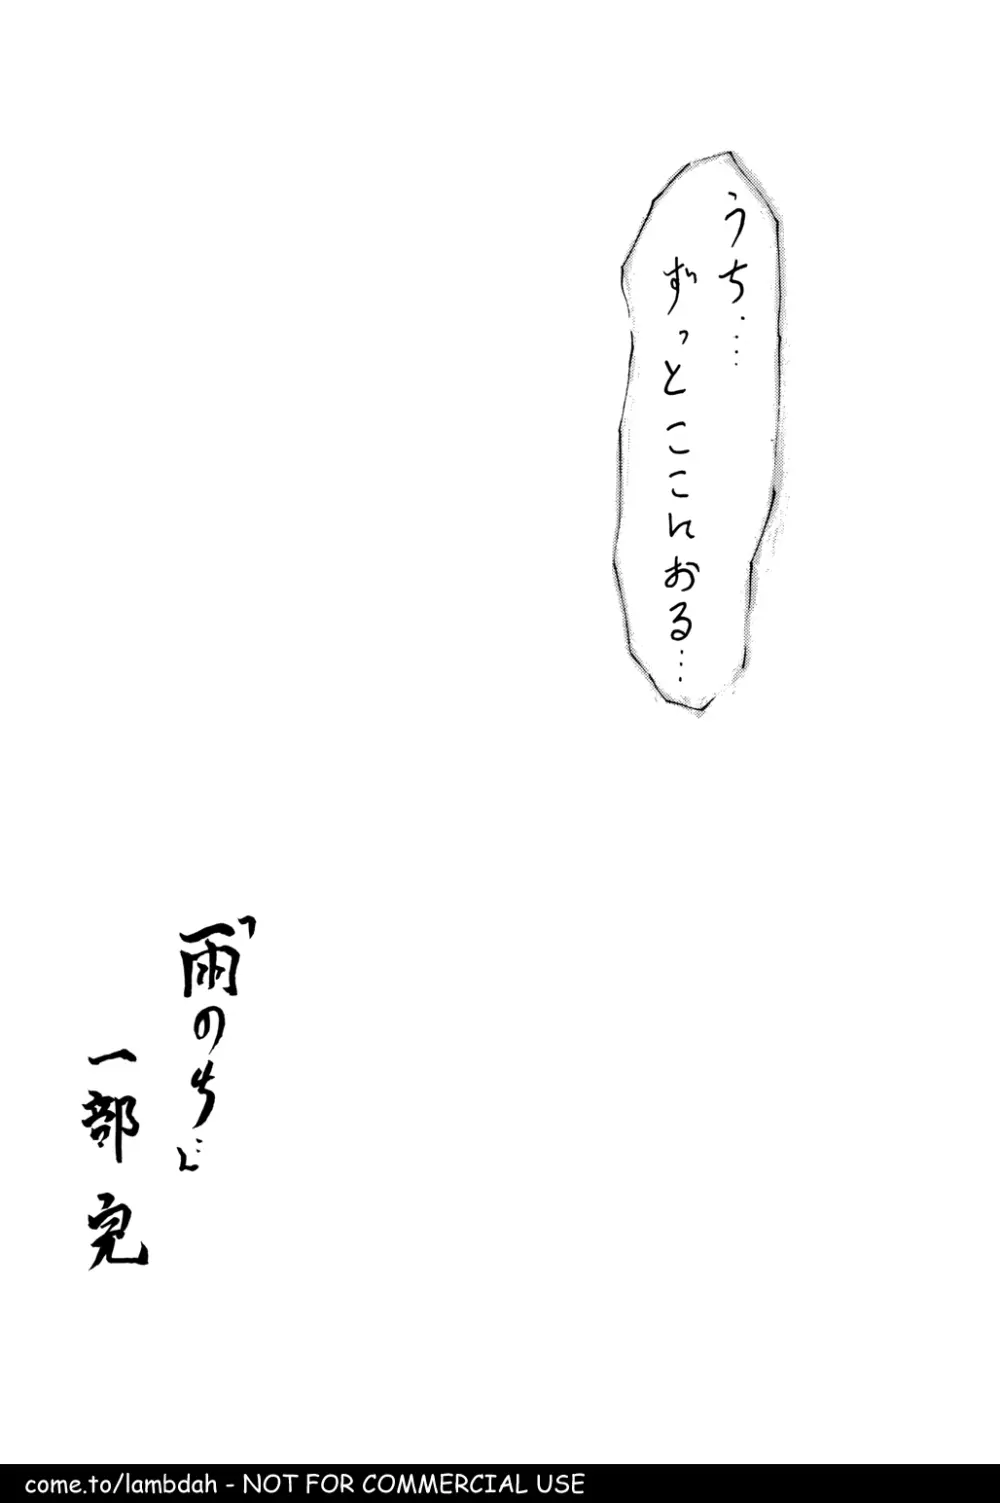 うち‥‥
ずっとここにおる…
一部完
come.to/lambdah - NOT FOR COMMERCIAL USE